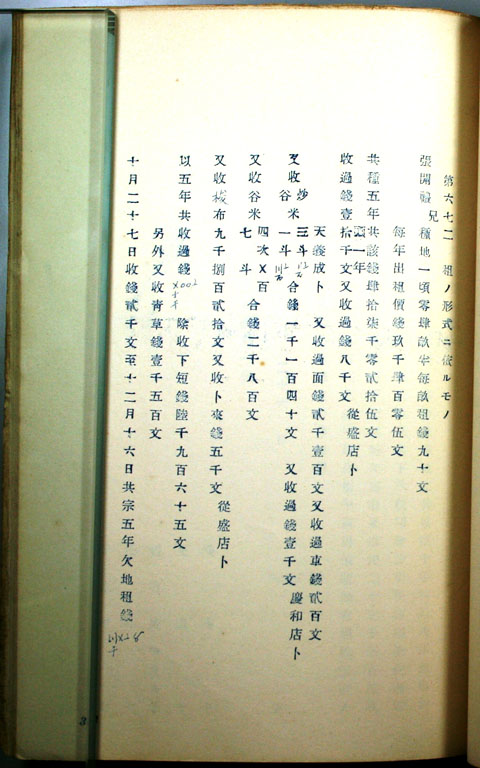 第六七二 租ノ形式ニ依ルモノ
張開 兒 種地一頃零肆畝半每畝租錢九十文
每年出租價錢玖千肆百零伍文
共種五年共該錢肆拾柒千零貳拾伍文
頭一年
收過錢壹拾千文又收過錢八千文 從盛店卜
天義成卜 又收過面錢貳千壹百文又收過車錢貳百文
又收 炒米三斗 谷一斗 合錢一千一百四十文 又收過錢壹千文 慶和店卜
又收谷米 四次 七斗 合錢二千八百文
又收 布九千捌百貳拾文又收卜來錢五千文 從盛店卜
以五年共收過錢 除收下短錢陸千九百六十五文
另外又收青草錢壹千五百文
十月二十七日收錢貳千文至十二月十六日共宗五年欠地租錢